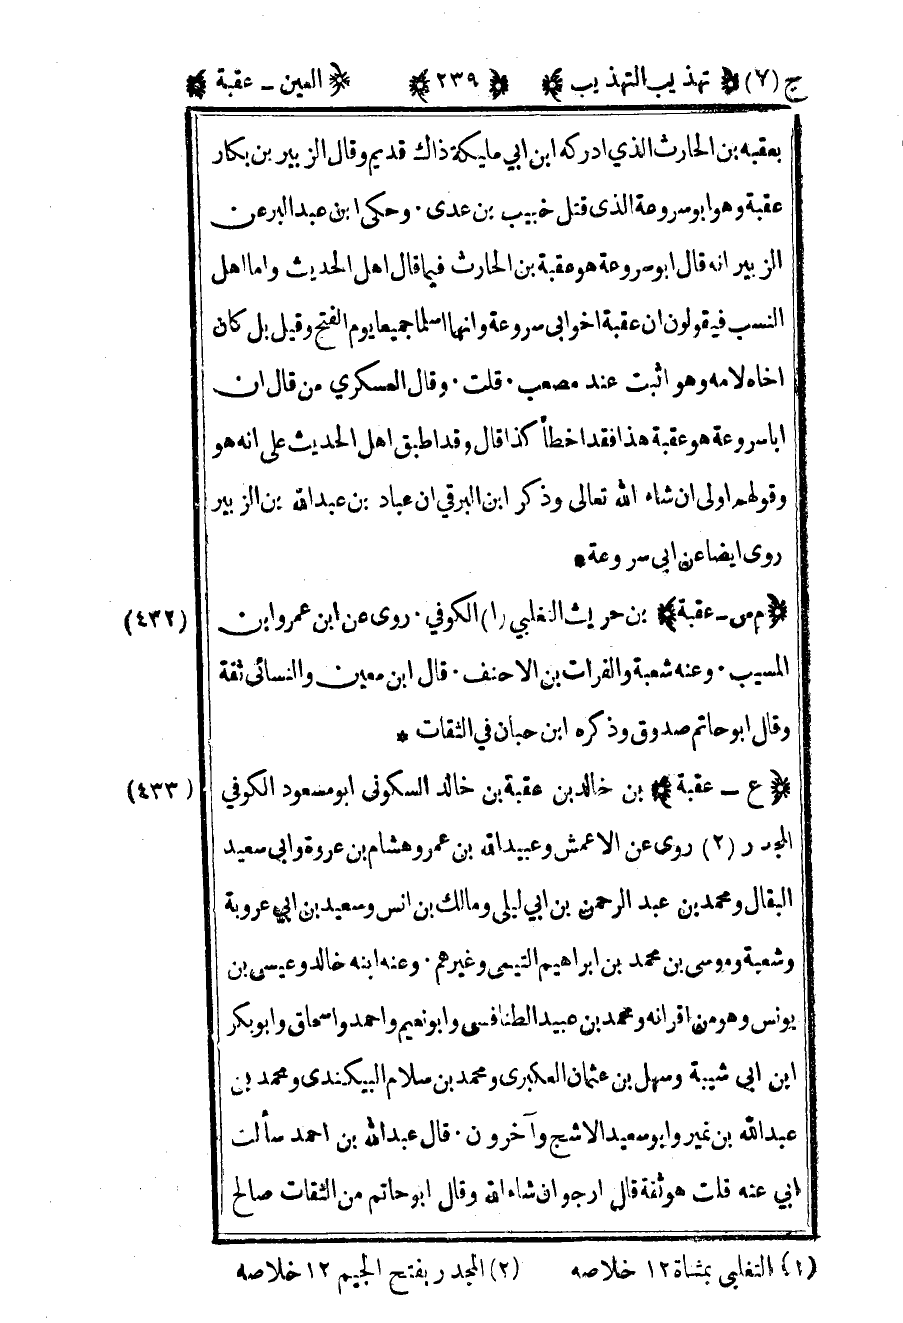 ج (٧) ﴿ تهذيب التهذيب ﴾ ﴿ ٢٣٩ ﴾ ﴿ العين ـ عقبة ﴾
بعقبه بن الحارث الذي ادركه ابن ابي مليكة ذاك قديم وقال الزبير بن بكار
عقبة وهو ابو سروعة الذى قتل خبيب بن عدى ٠ وحكى ابن عبد البر عن
الزبير انه قال ابو سروعة هو عقبة بن الحارث فيما قال اهل الحديث واما اهل
النسب فيقولون ان عقبة اخو ابى سروعة وانهما اسلما جميعا يوم الفتح وقيل بل كان
اخاه لامه وهو اثبت عند مصعب ٠ قلت ٠ وقال العسكري من قال ان
ابا سروعة هو عقبة هذا فقد اخطأ كذا قال وقد اطبق اهل الحديث على انه هو
وقولهم اولى ان شاء الله تعالى وذكر ابن البرقي ان عباد بن عبد الله بن الزبير
روى ايضا عن ابي سروعة *
(٤٣٢) ﴿ م س ـ عقبة ﴾ بن حريث التغلبي (١) الكوفي ٠ روى عن ابن عمر وابن
المسيب ٠ وعنه شعبة والفرات بن الاحنف ٠ قال ابن معين والنسائى ثقة
وقال ابو حاتم صدوق وذكره ابن حبان في الثقات *
(٤٣٣) ﴿ ع ـ عقبة ﴾ بن خالد بن عقبة بن خالد السكونى ابو مسعود الكوفي
المجدر (٢) روى عن الاعمش وعبيد الله بن عمر وهشام بن عروة وابي سعيد
البقال ومحمد بن عبد الرحمن بن ابي ليلى ومالك بن انس وسعيد بن ابي عروبة
وشعبة وموسى بن محمد بن ابراهيم التيمي وغيرهم ٠ وعنه ابنه خالد وعيسى بن
يونس وهو من اقرانه ومحمد بن عبيد الطنافسى وابو نعيم واحمد واسحاق وابو بكر
ابن ابي شيبة وسهل بن عثمان العكبرى ومحمد بن سلام البيكندى ومحمد بن
عبد الله بن نمير وابو سعيد الاشج وآخرون ٠ قال عبد الله بن احمد سألت
ابي عنه قلت هو ثقة قال ارجو ان شاء الله وقال ابو حاتم من الثقات صالح
(١) التغلبى بمثناة ١٢ خلاصه (٢) المجدر بفتح الجيم ١٢ خلاصه